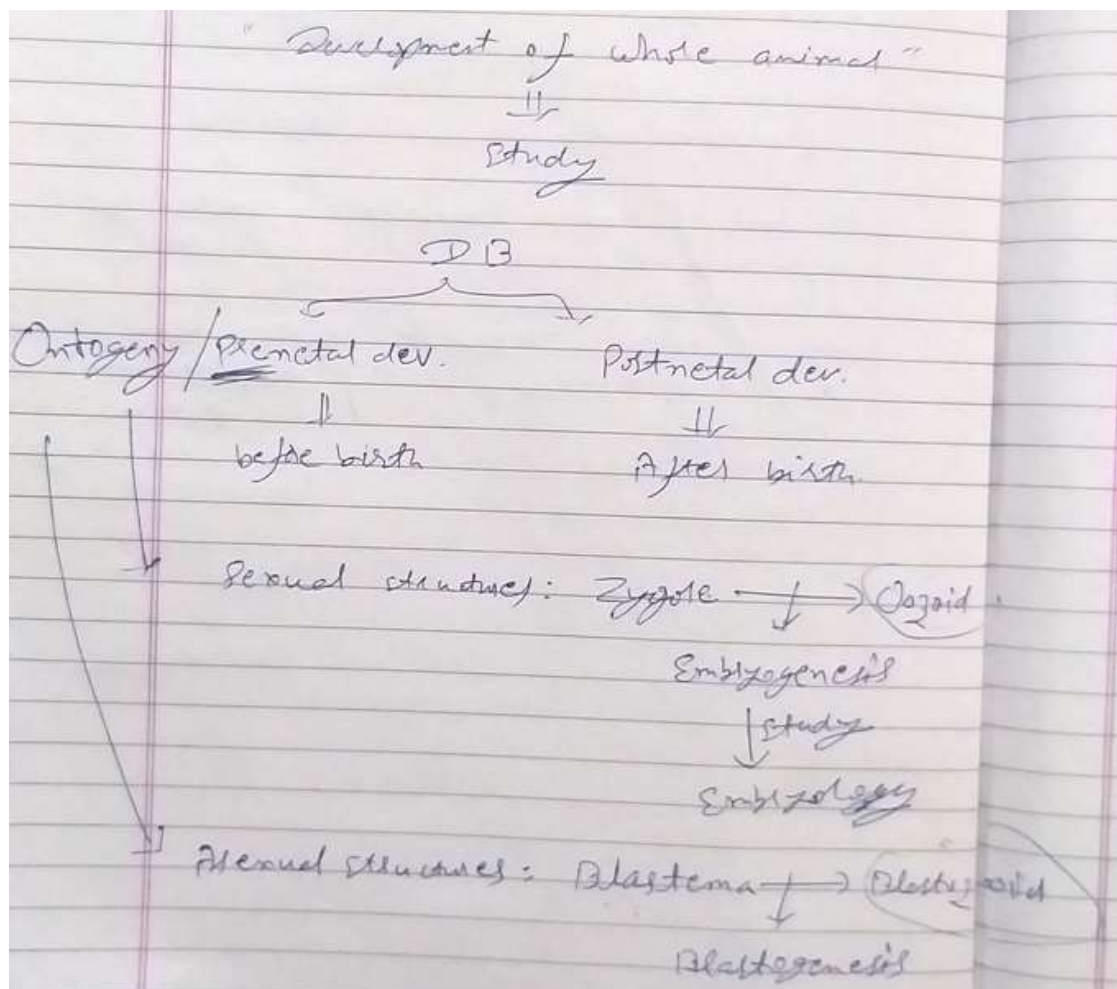 "Development of whole animal"
Study
DB
Ontogeny / Prenetal dev. Postnetal dev.
before birth After birth
Sexual structures: Zygote → Oozoid
Embryogenesis
study
Embryology
Asexual structures: Blastema → Blastozooid
Blastogenesis